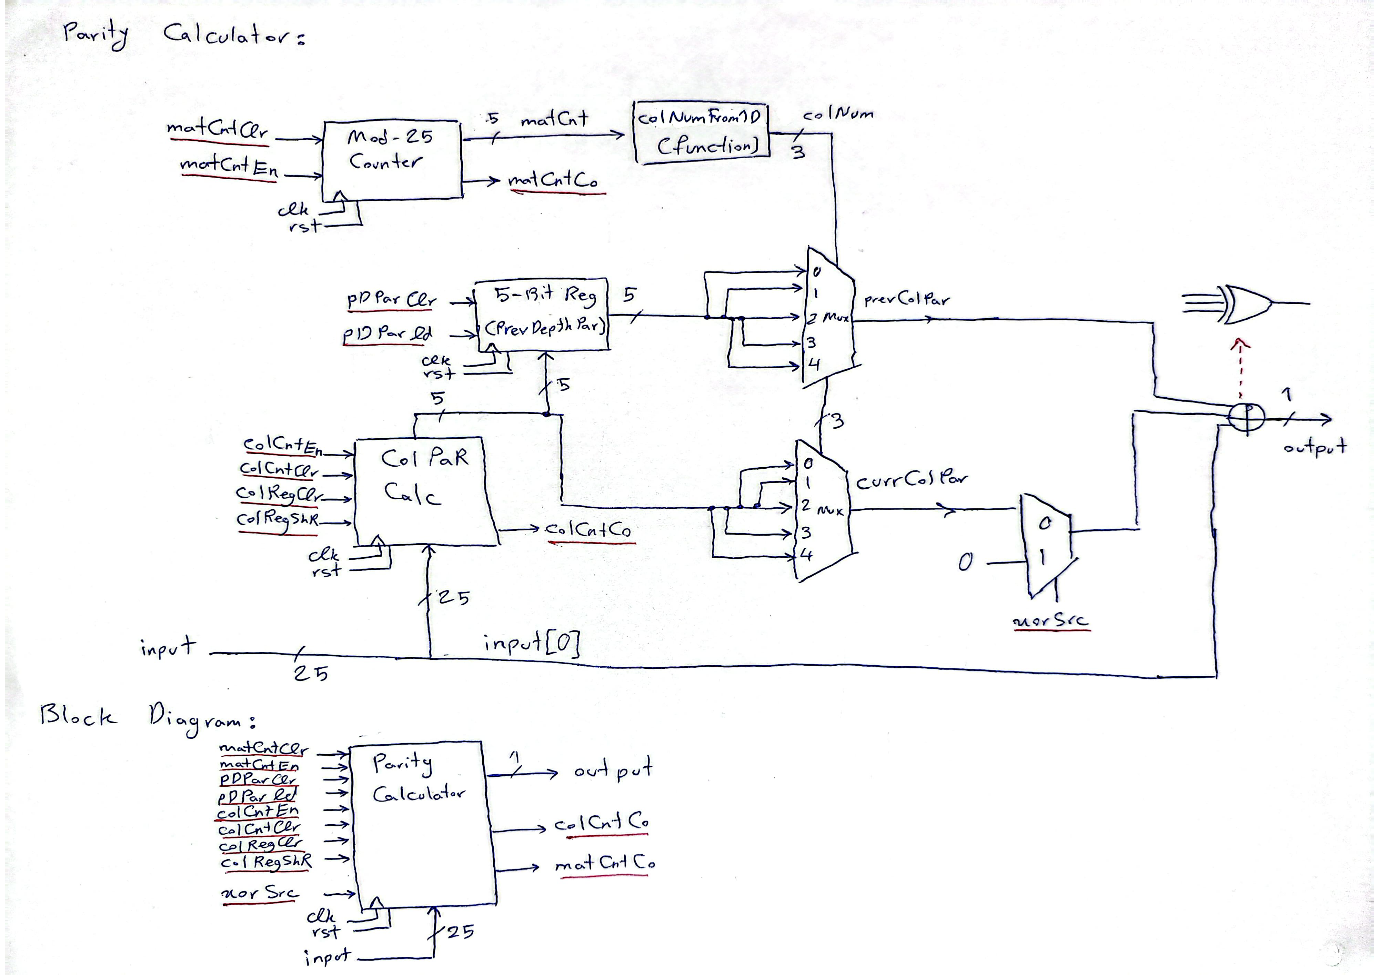 Parity Calculator:
matCntClr
matCntEn
Mod-25
Counter
clk
rst
5 matCnt
matCntCo
colNumFrom1D
(function)
colNum
3
pDParClr
pDParld
5-Bit Reg
(PrevDepthPar)
clk
rst
5
5
5
0
1
2 Mux
3
4
prevColPar
3
1
output
colCntEn
colCntClr
colRegClr
colRegShR
Col PaR
Calc
clk
rst
colCntCo
25
0
1
2 Mux
3
4
currColPar
0
0
1
xorSrc
input
25
input[0]
Block Diagram:
matCntClr
matCntEn
pDParClr
pDParld
colCntEn
colCntClr
colRegClr
colRegShR
xorSrc
clk
rst
input
Parity
Calculator
1
output
colCntCo
matCntCo
25